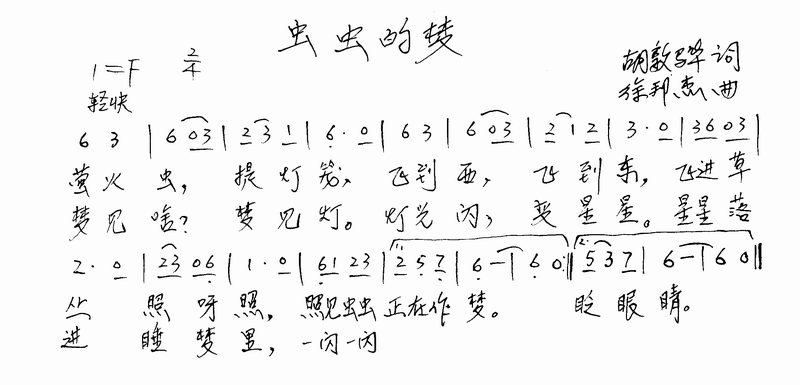 虫虫的梦
1=F 2/4
胡敦骅 词
轻快
徐邦杰 曲
6 3 | 6 03 | 2 3 1 | 6· 0 | 6 3 | 6 03 | 2 1 2 | 3· 0 | 36 03 |
萤火虫，提灯笼，飞到西，飞到东，飞进草
梦见啥？梦见灯。灯光闪，变星星。星星落
2· 0 | 23 06 | 1· 0 | 61 23 | 1. 2 5 7 | 6 - | 6 0 :|| 2. 5 3 7 | 6 - | 6 0 ||
丛 照呀照，照见虫虫正在作梦。 眨眼睛。
进 睡梦里，一闪一闪